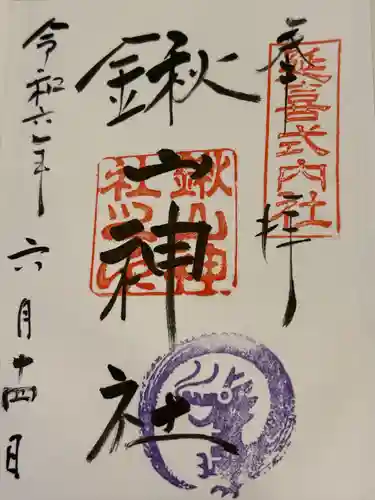 奉拝
延喜式内社
鍬山神社
鍬山神社之印
令和六年 六月十四日